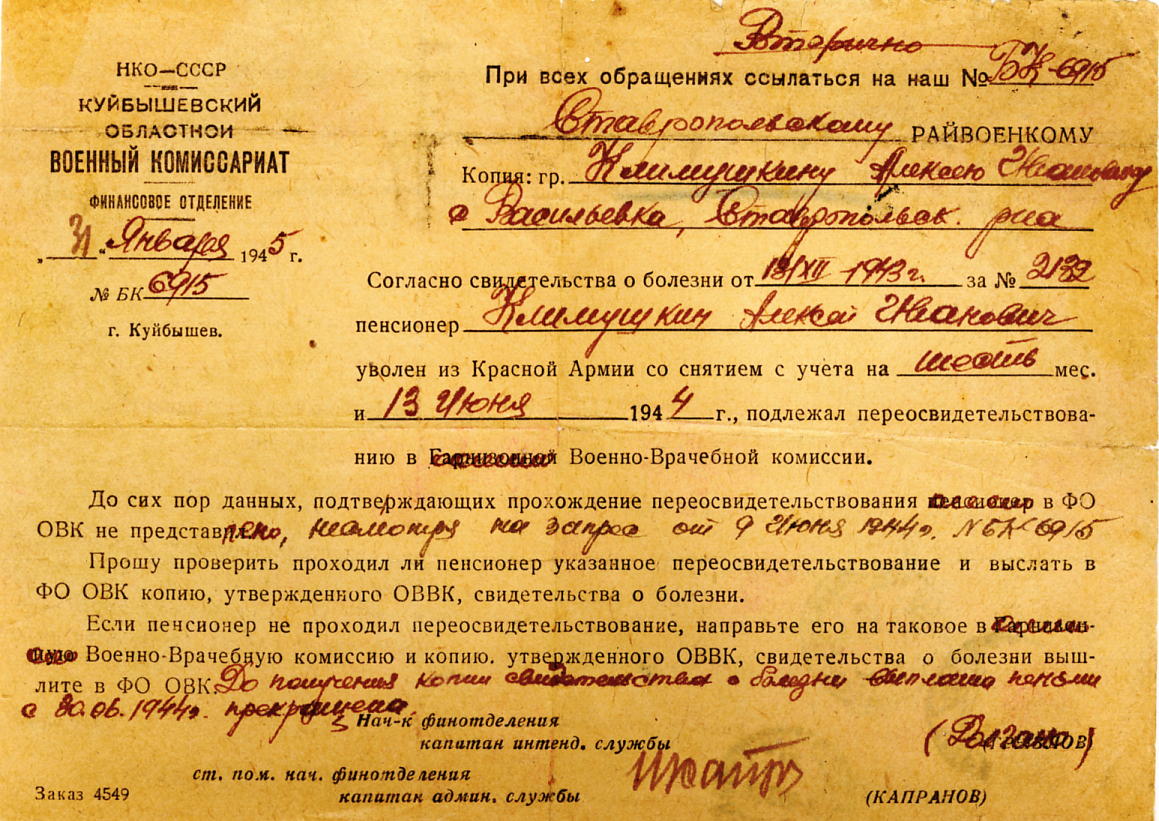 Вторично
НКО—СССР
КУЙБЫШЕВСКИЙ
ОБЛАСТНОЙ
ВОЕННЫЙ КОМИССАРИАТ
ФИНАНСОВОЕ ОТДЕЛЕНИЕ
„31" Января 1945 г.
№ БК 6915
г. Куйбышев.
При всех обращениях ссылаться на наш № БК-6915
Ставропольскому РАЙВОЕНКОМУ
Копия: гр. Климушкину Алексею Ивановичу
с Васильевка, Ставропольск. р-на
Согласно свидетельства о болезни от 13/XII 1943 г. за № 2132
пенсионер Климушкин Алексей Иванович
уволен из Красной Армии со снятием с учета на шесть мес.
и 13 Июня 1944 г., подлежал переосвидетельствова-
нию в Военно-Врачебной комиссии.
До сих пор данных, подтверждающих прохождение переосвидетельствования в ФО
ОВК не представлено, несмотря на запрос от 9 Июня 1944г. № БК 6915
Прошу проверить проходил ли пенсионер указанное переосвидетельствование и выслать в
ФО ОВК копию, утвержденного ОВВК, свидетельства о болезни.
Если пенсионер не проходил переосвидетельствование, направьте его на таковое в
Военно-Врачебную комиссию и копию. утвержденного ОВВК, свидетельства о болезни выш-
лите в ФО ОВК До получения копии свидетельства о болезни выплата пенсии
с 30.06.1944г. прекращена.
Нач-к финотделения
капитан интенд. службы
ст. пом. нач. финотделения
капитан админ. службы (КАПРАНОВ)
Заказ 4549